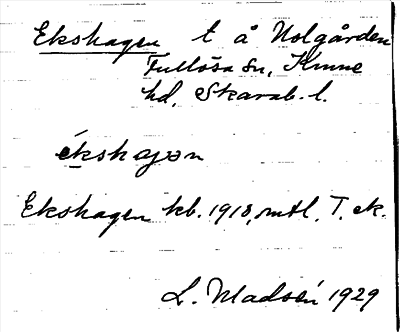 Ekshagen t å Holgården
Fullösa sn, Kinne
hd, Skarab. l.
ékshagən
Ekshagen kb. 1918, mtl. T. ek.
L. Madsén 1929